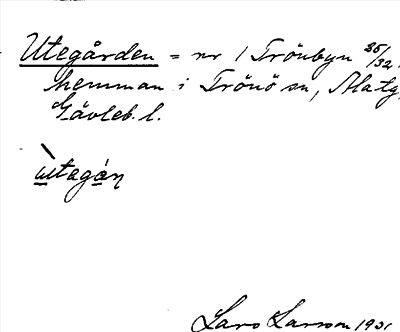 Utegården = nr 1 Trönbyn 25/32.
hemman i Trönö sn, Ala tg,
Gävleb. l.
ùtagán
Lars Larsson 1931